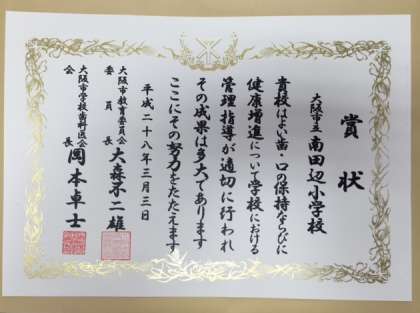 賞状
大阪市立南田辺小学校
貴校はよい歯・口の保持ならびに
健康増進について学校における
管理指導が適切に行われ
その成果は多大であります
ここにその努力をたたえます
平成二十八年三月三日
大阪市教育委員会
委員長 大森不二雄
大阪市学校歯科医会
会長 岡本卓士